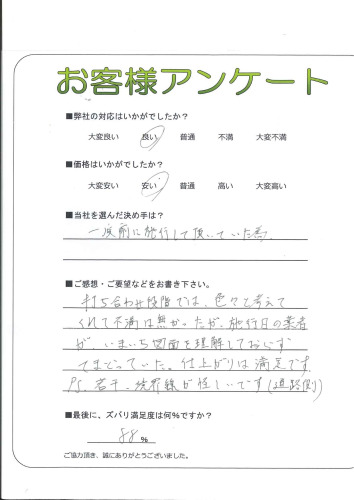 お客様アンケート
■弊社の対応はいかがでしたか？
大変良い 良い 普通 不満 大変不満
■価格はいかがでしたか？
大変安い 安い 普通 高い 大変高い
■当社を選んだ決め手は？
一度前に施行して頂いていた為。
■ご感想・ご要望などをお書き下さい。
打ち合わせ段階では、色々と考えて
くれて不満は無かったが、施行日の業者
が、いまいち図面を理解しておらず
てまどっていた。仕上がりは満足です。
P.S. 若干、境界線が怪しいです(道路側)
■最後に、ズバリ満足度は何％ですか？
88 ％
ご協力頂き、誠にありがとうございました。